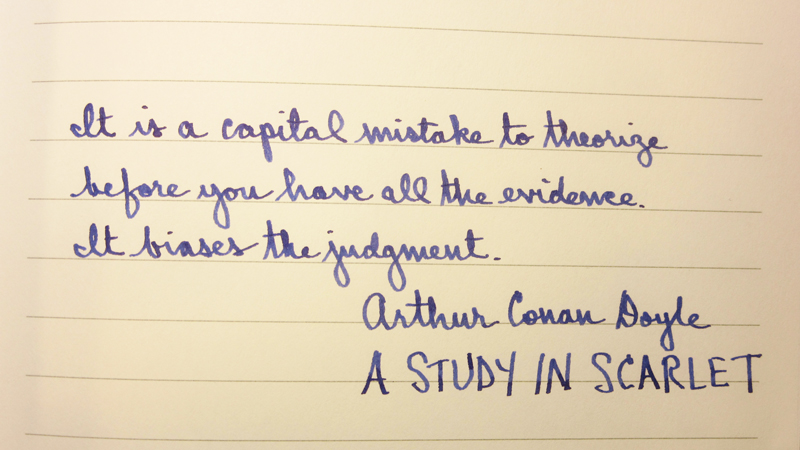 It is a capital mistake to theorize
before you have all the evidence.
It biases the judgment.
Arthur Conan Doyle
A STUDY IN SCARLET